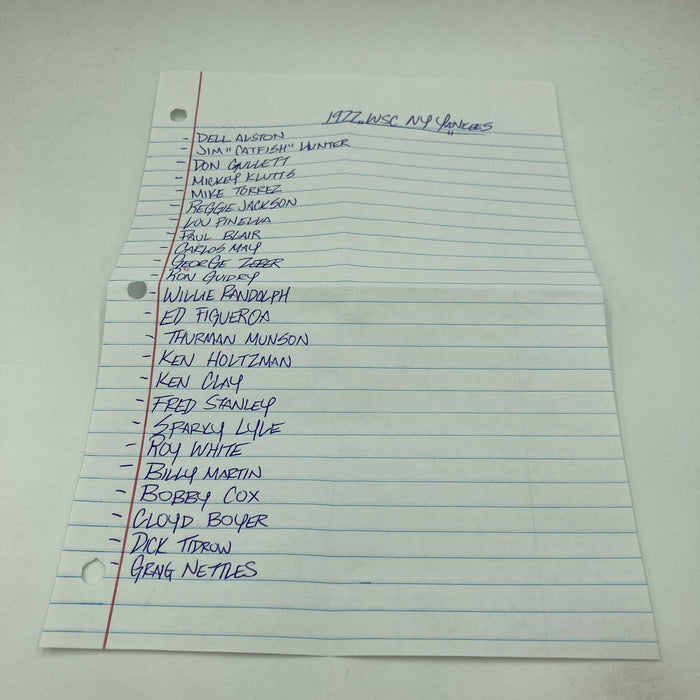 1977 WSC NY YANKEES
- DELL ALSTON
- JIM "CATFISH" HUNTER
- DON GULLETT
- MICKEY KLUTTS
- MIKE TORREZ
- REGGIE JACKSON
- LOU PINELLA
- PAUL BLAIR
- CARLOS MAY
- GEORGE ZEBER
- RON GUIDRY
- WILLIE RANDOLPH
- ED FIGUEROA
- THURMAN MUNSON
- KEN HOLTZMAN
- KEN CLAY
- FRED STANLEY
- SPARKY LYLE
- ROY WHITE
- BILLY MARTIN
- BOBBY COX
- CLOYD BOYER
- DICK TIDROW
- GRAIG NETTLES